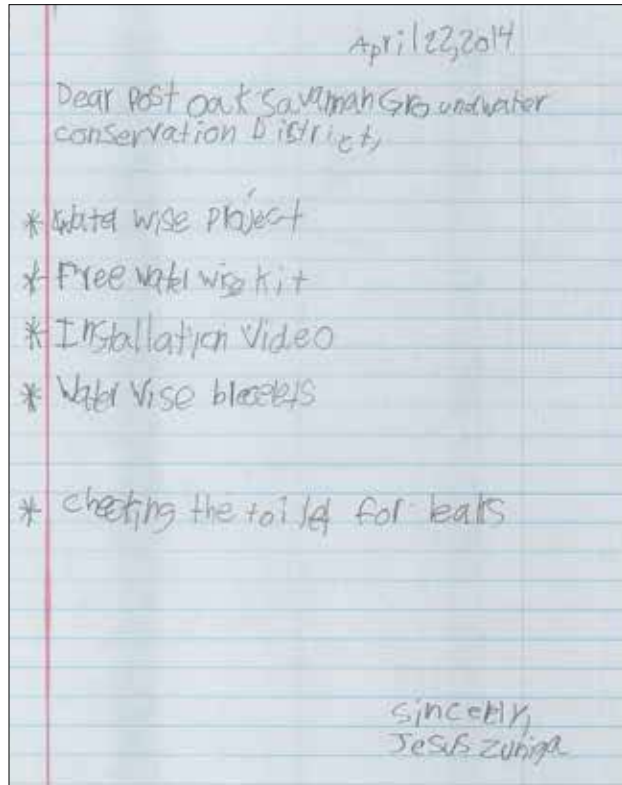 April 22, 2014
Dear Post Oak Savannah Groundwater
conservation District,
* Water wise project
* Free water wise kit
* Installation Video
* Water Wise bracelets
* checking the toilet for leaks
sincerly,
Jesus Zuniga